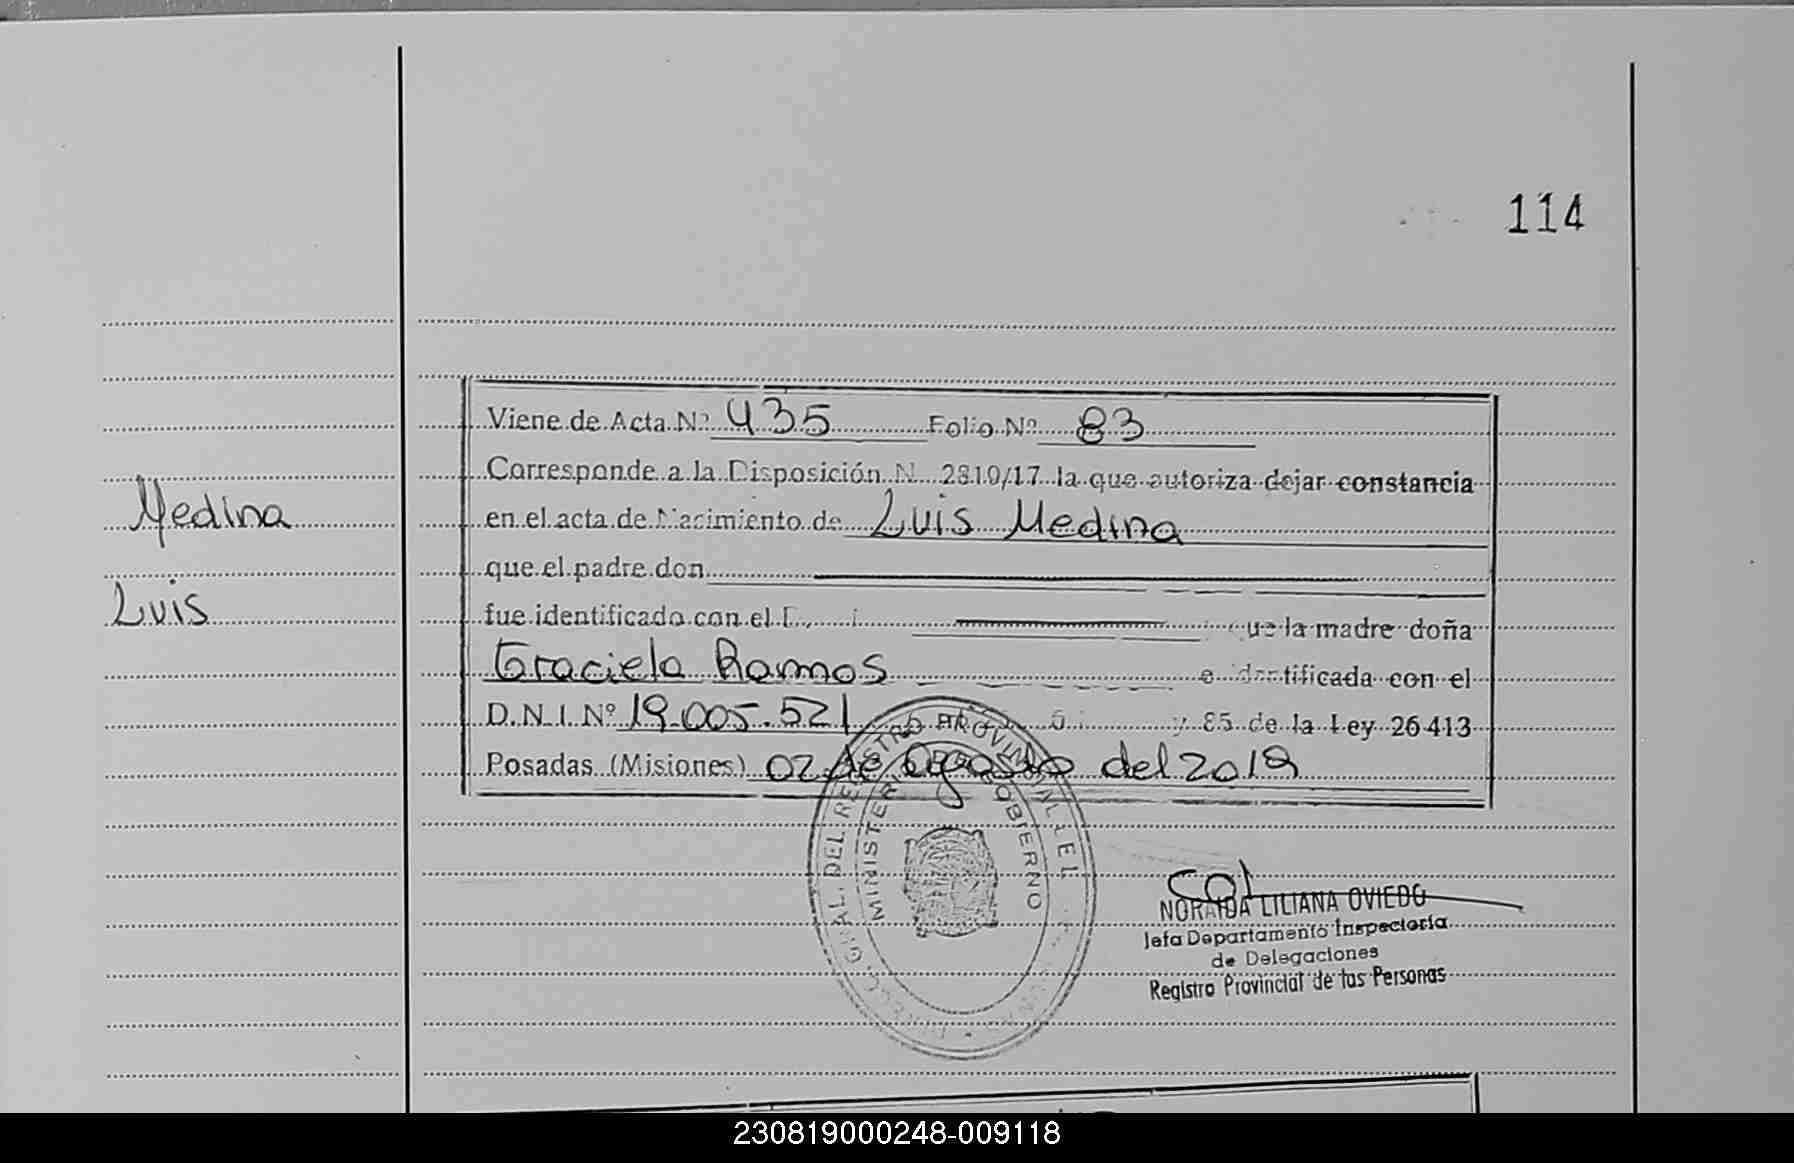 114
Viene de Acta Nº 435 Folio Nº 83
Corresponde a la Disposición N 2810/17 la que autoriza dejar constancia
en el acta de Nacimiento de Luis Medina
que el padre don
fue identificado con el que la madre doña
Graciela Ramos identificada con el
D.N.I. Nº 19.005.521 y 85 de la Ley 26413
Posadas (Misiones) 02 de agosto del 2019
Medina
Luis
DEL REGISTRO PROVINCIAL DE
MINISTERIO GOBIERNO
NORAIDA LILIANA OVIEDO
Jefa Departamento Inspectoría
de Delegaciones
Registro Provincial de las Personas
230819000248-009118